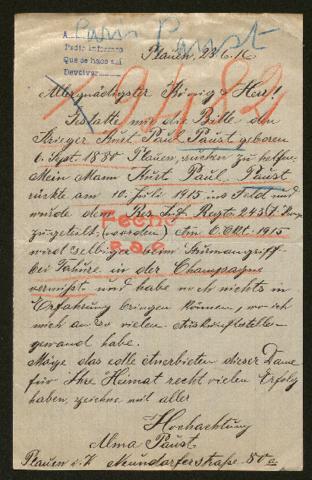 A
Pedir informes
Que se hace así
Devolver
Paul Paust
Plauen, 28.6.16
9482
Allergnädigster König & Herr!
Gestatte mir die Bitte den
Krieger Kurt Paul Paust geboren
6. Sept. 1880 Plauen, suchen zu helfen.
Mein Mann Kurt Paul Paust
rückte am 10. Juli 1915 ins Feld und
wurde dem Res. Inf. Regt. 243 7. Komp.
zugeteilt (worden) Am 6. Okt. 1915
wird selbiger beim Sturmangriff
bei Tahure in der Champagne
vermißt und habe noch nichts in
Erfahrung bringen können, wo ich
mich an so vielen Auskunftstellen
gewand habe.
Möge das edle Anerbieten dieser Dame
für Ihre Heimat recht vielen Erfolg
haben, zeichne mit aller
Hochachtung
Alma Paust
Plauen i. V. Neundorferstraße 80 a.